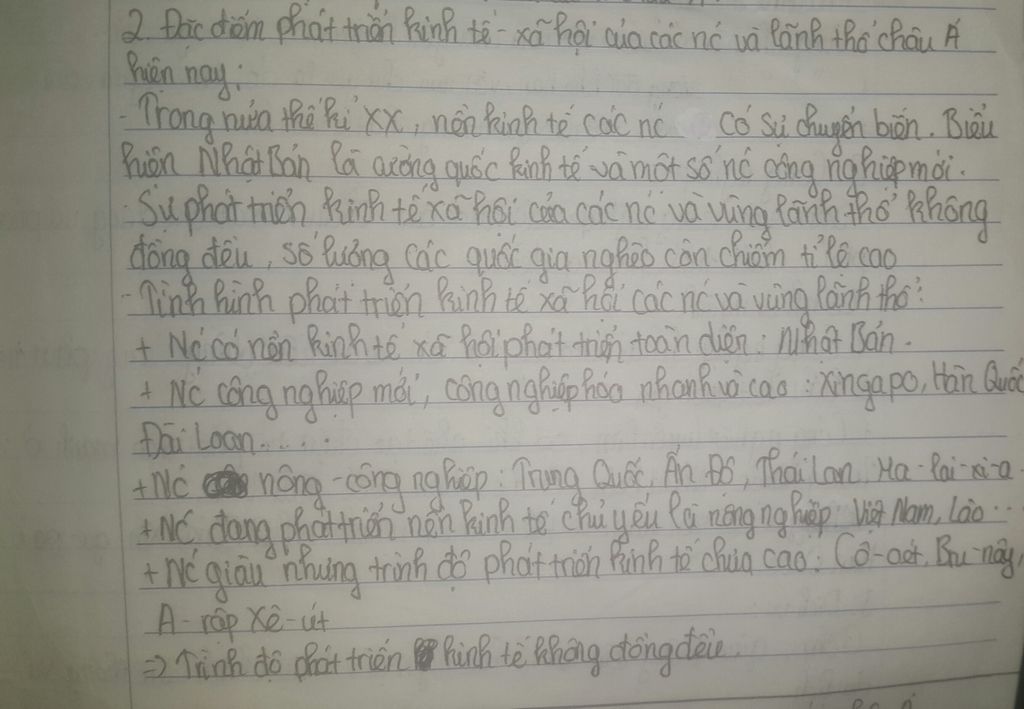 2. Đặc điểm phát triển kinh tế - xã hội của các nc và lãnh thổ châu Á
hiện nay:
- Trong nửa thế kỉ XX, nền kinh tế các nc có sự chuyển biến. Biểu
hiện Nhật Bản là cường quốc kinh tế và một số nc công nghiệp mới.
- Sự phát triển kinh tế xã hội của các nc và vùng lãnh thổ không
đồng đều, số lượng các quốc gia nghèo còn chiếm tỉ lệ cao
- Tình hình phát triển kinh tế xã hội các nc và vùng lãnh thổ:
+ Nc có nền kinh tế xã hội phát triển toàn diện: Nhật Bản.
+ Nc công nghiệp mới, công nghiệp hóa nhanh và cao: Xingapo, Hàn Quốc
Đài Loan.....
+ Nc nông - công nghiệp: Trung Quốc, Ấn Độ, Thái Lan, Ma-lai-xi-a
+ Nc đang phát triển nền kinh tế chủ yếu là nông nghiệp: Việt Nam, Lào...
+ Nc giàu nhưng trình độ phát triển kinh tế chưa cao: Cô-oét, Bru-nây,
A-rập Xê-út
=> Trình độ phát triển kinh tế không đồng đều